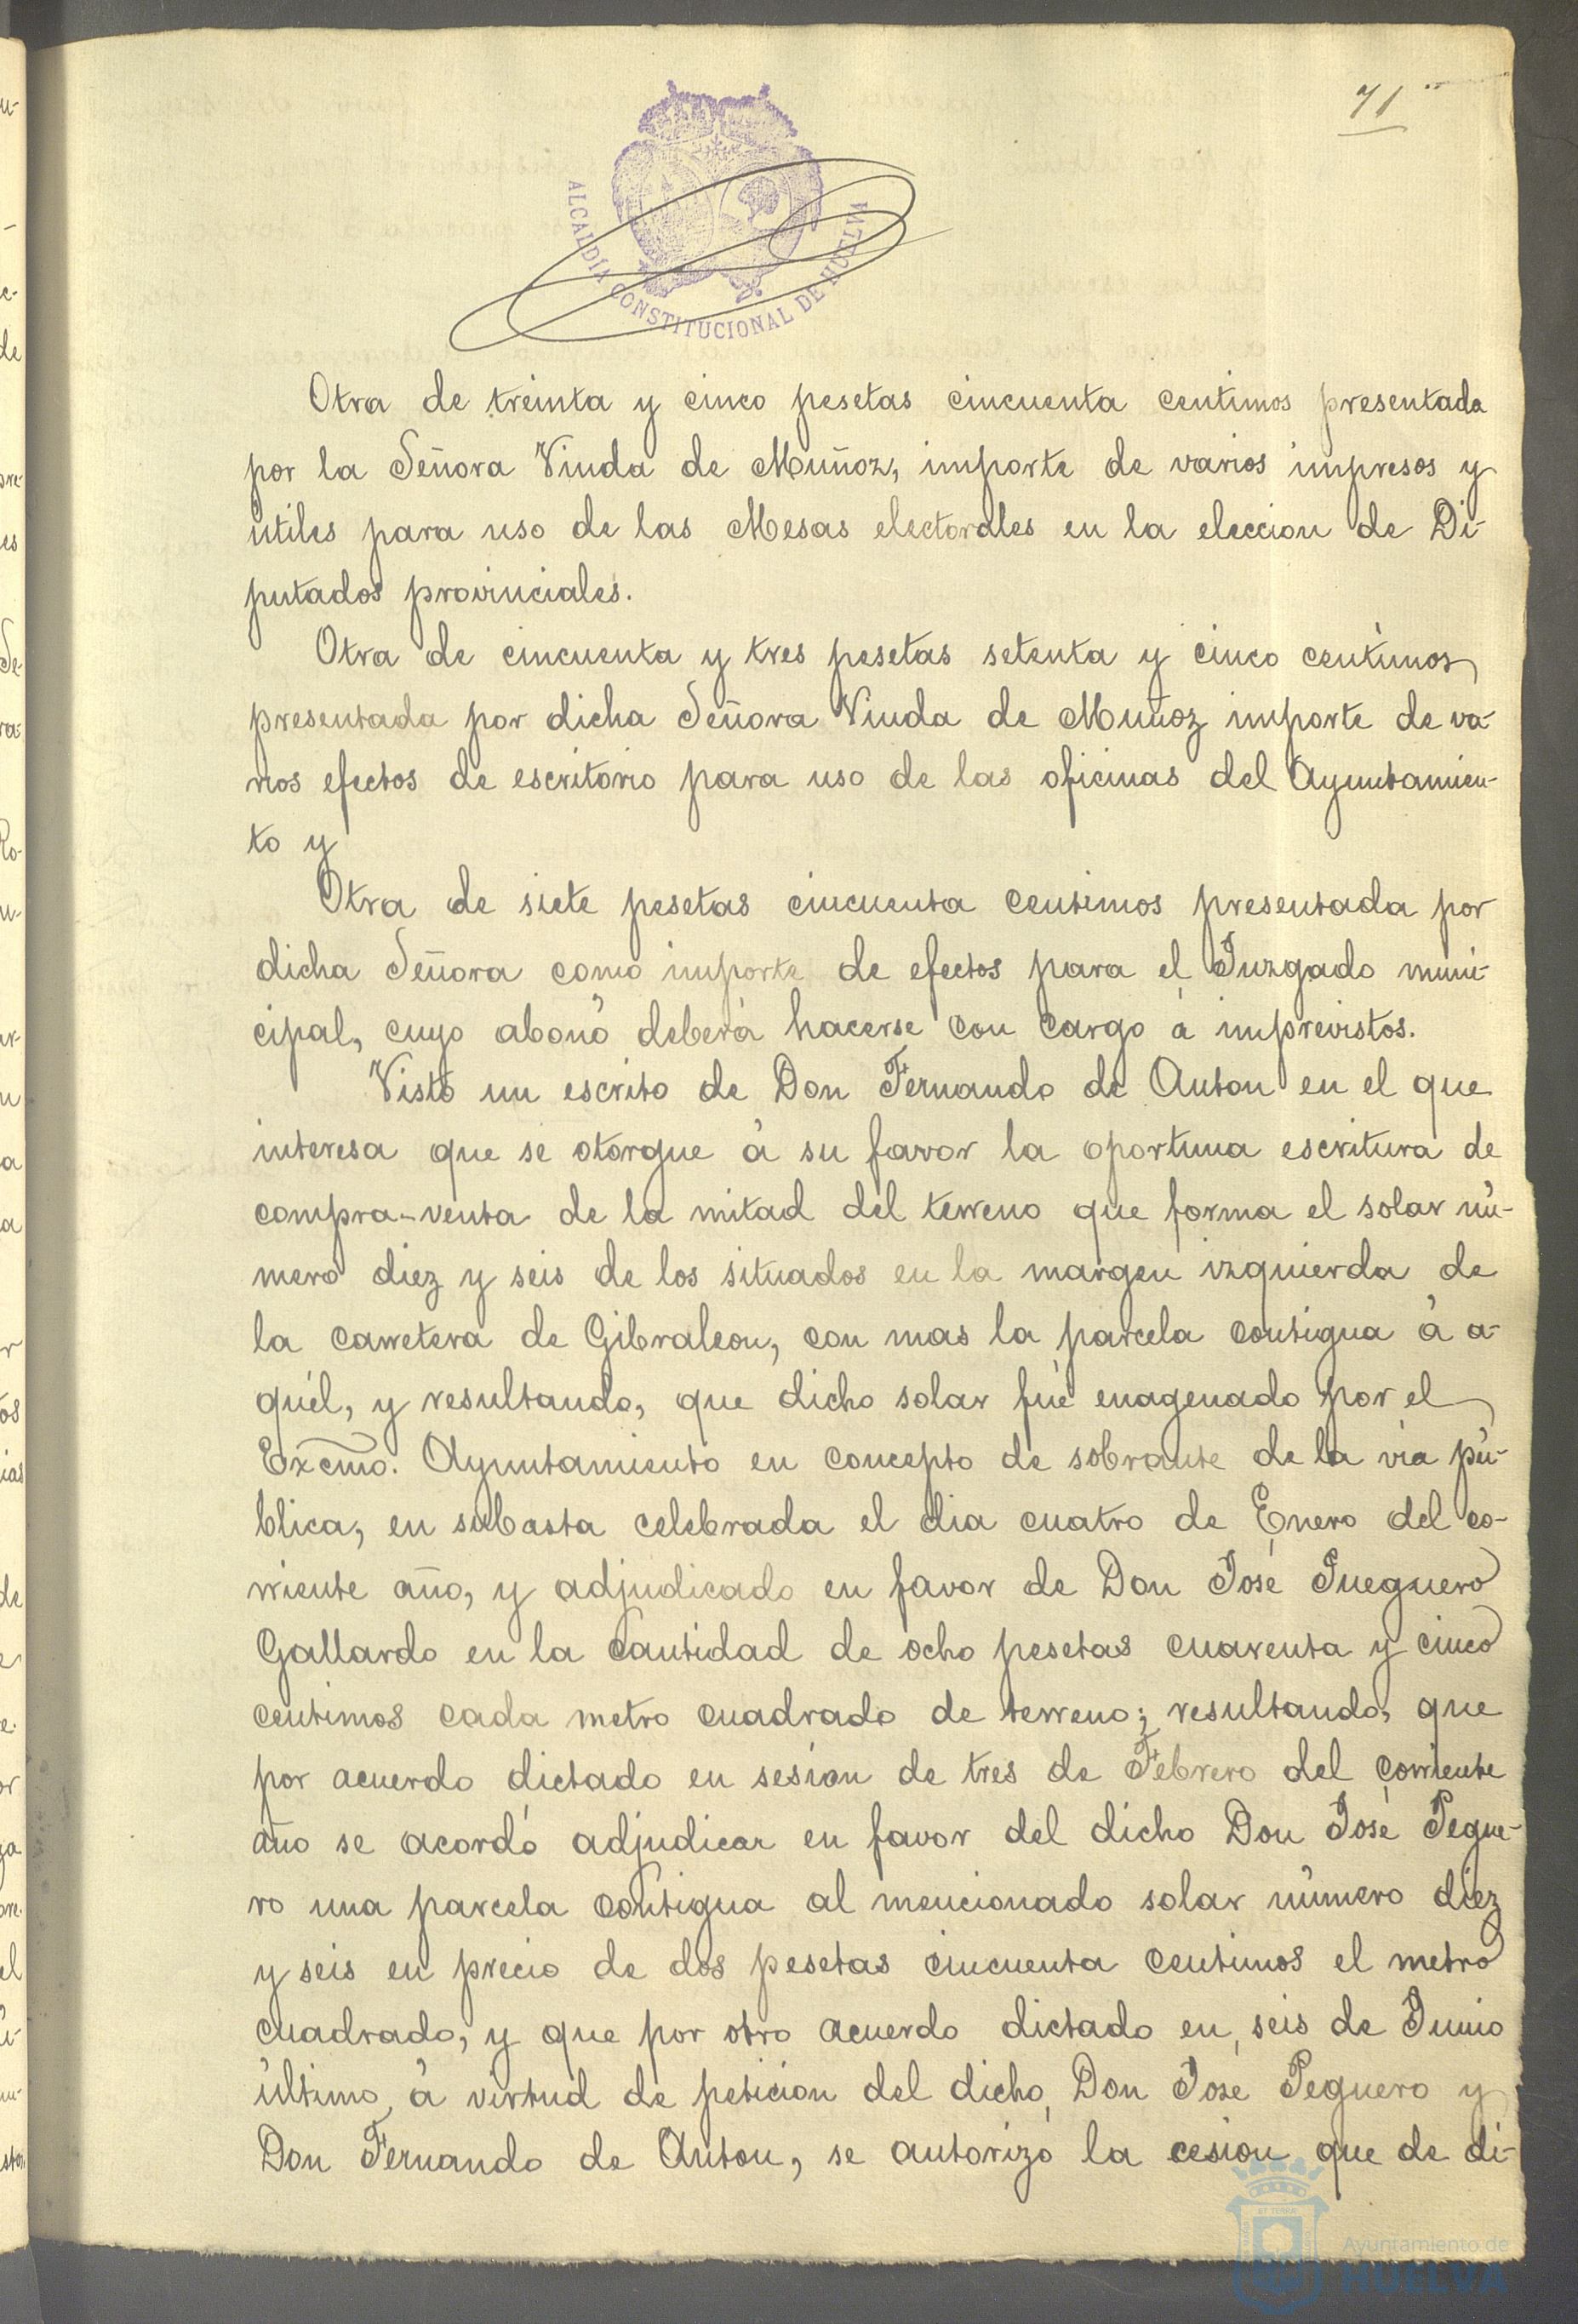 71
ALCALDIA CONSTITUCIONAL DE HUELVA
Otra de treinta y cinco pesetas cincuenta centimos presentada
por la Señora Viuda de Muñoz, importe de varios impresos y
útiles para uso de las Mesas electorales en la eleccion de Di-
putados provinciales.
Otra de cincuenta y tres pesetas setenta y cinco centimos
presentada por dicha Señora Viuda de Muñoz importe de va-
rios efectos de escritorio para uso de las oficinas del Ayuntamien-
to y
Otra de siete pesetas cincuenta centimos presentada por
dicha Señora como importe de efectos para el Juzgado muni-
cipal, cuyo abono deberá hacerse con cargo á imprevistos.
Visto un escrito de Don Fernando de Anton en el que
interesa que se otorgue á su favor la oportuna escritura de
compra-venta de la mitad del terreno que forma el solar nú-
mero diez y seis de los situados en la margen izquierda de
la carretera de Gibraleon, con mas la parcela contigua á a-
quél, y resultando, que dicho solar fué enagenado por el
Excmo. Ayuntamiento en concepto de sobrante de la via pú-
blica, en subasta celebrada el dia cuatro de Enero del co-
rriente año, y adjudicado en favor de Don José Pueguero
Gallardo en la cantidad de ocho pesetas cuarenta y cinco
centimos cada metro cuadrado de terreno; resultando, que
por acuerdo dictado en sesion de tres de Febrero del corriente
año se acordó adjudicar en favor del dicho Don José Pegue-
ro una parcela contigua al mencionado solar número diez
y seis en precio de dos pesetas cincuenta centimos el metro
cuadrado, y que por otro acuerdo dictado en seis de Junio
último, á virtud de peticion del dicho Don José Peguero y
Don Fernando de Anton, se autorizó la cesion que de di-
Ayuntamiento de
HUELVA